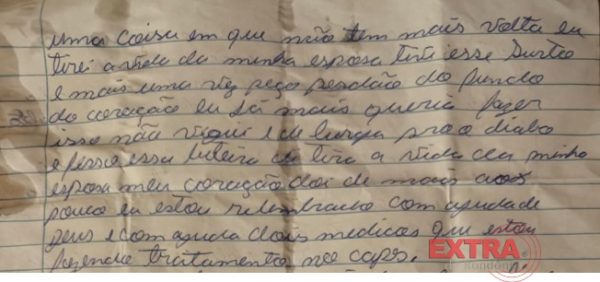 uma coisa em que não tem mais volta eu
tirei a vida da minha esposa tive esse surto
e mais uma vez peço perdão do fundo
do coração eu já mais queria fazer
isso não vigiei e de lurga pra o diabo
e fisso essa bileira de tira a vida da minha
esposa meu coração doi de mais aos
pouco eu estou relembrado com ajuda de
Deus e com ajuda dois medicos que estou
fazendo tratamento no caps.
EXTRA